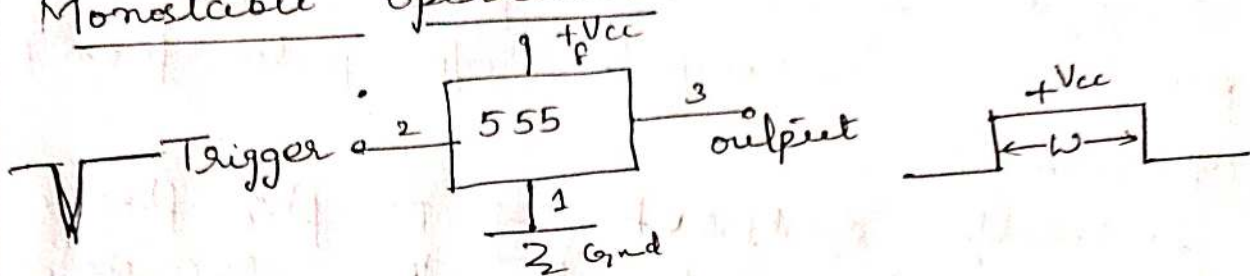 Monostable
+Vcc
8
Trigger
2
555
3
output
1
Gnd
+Vcc
W